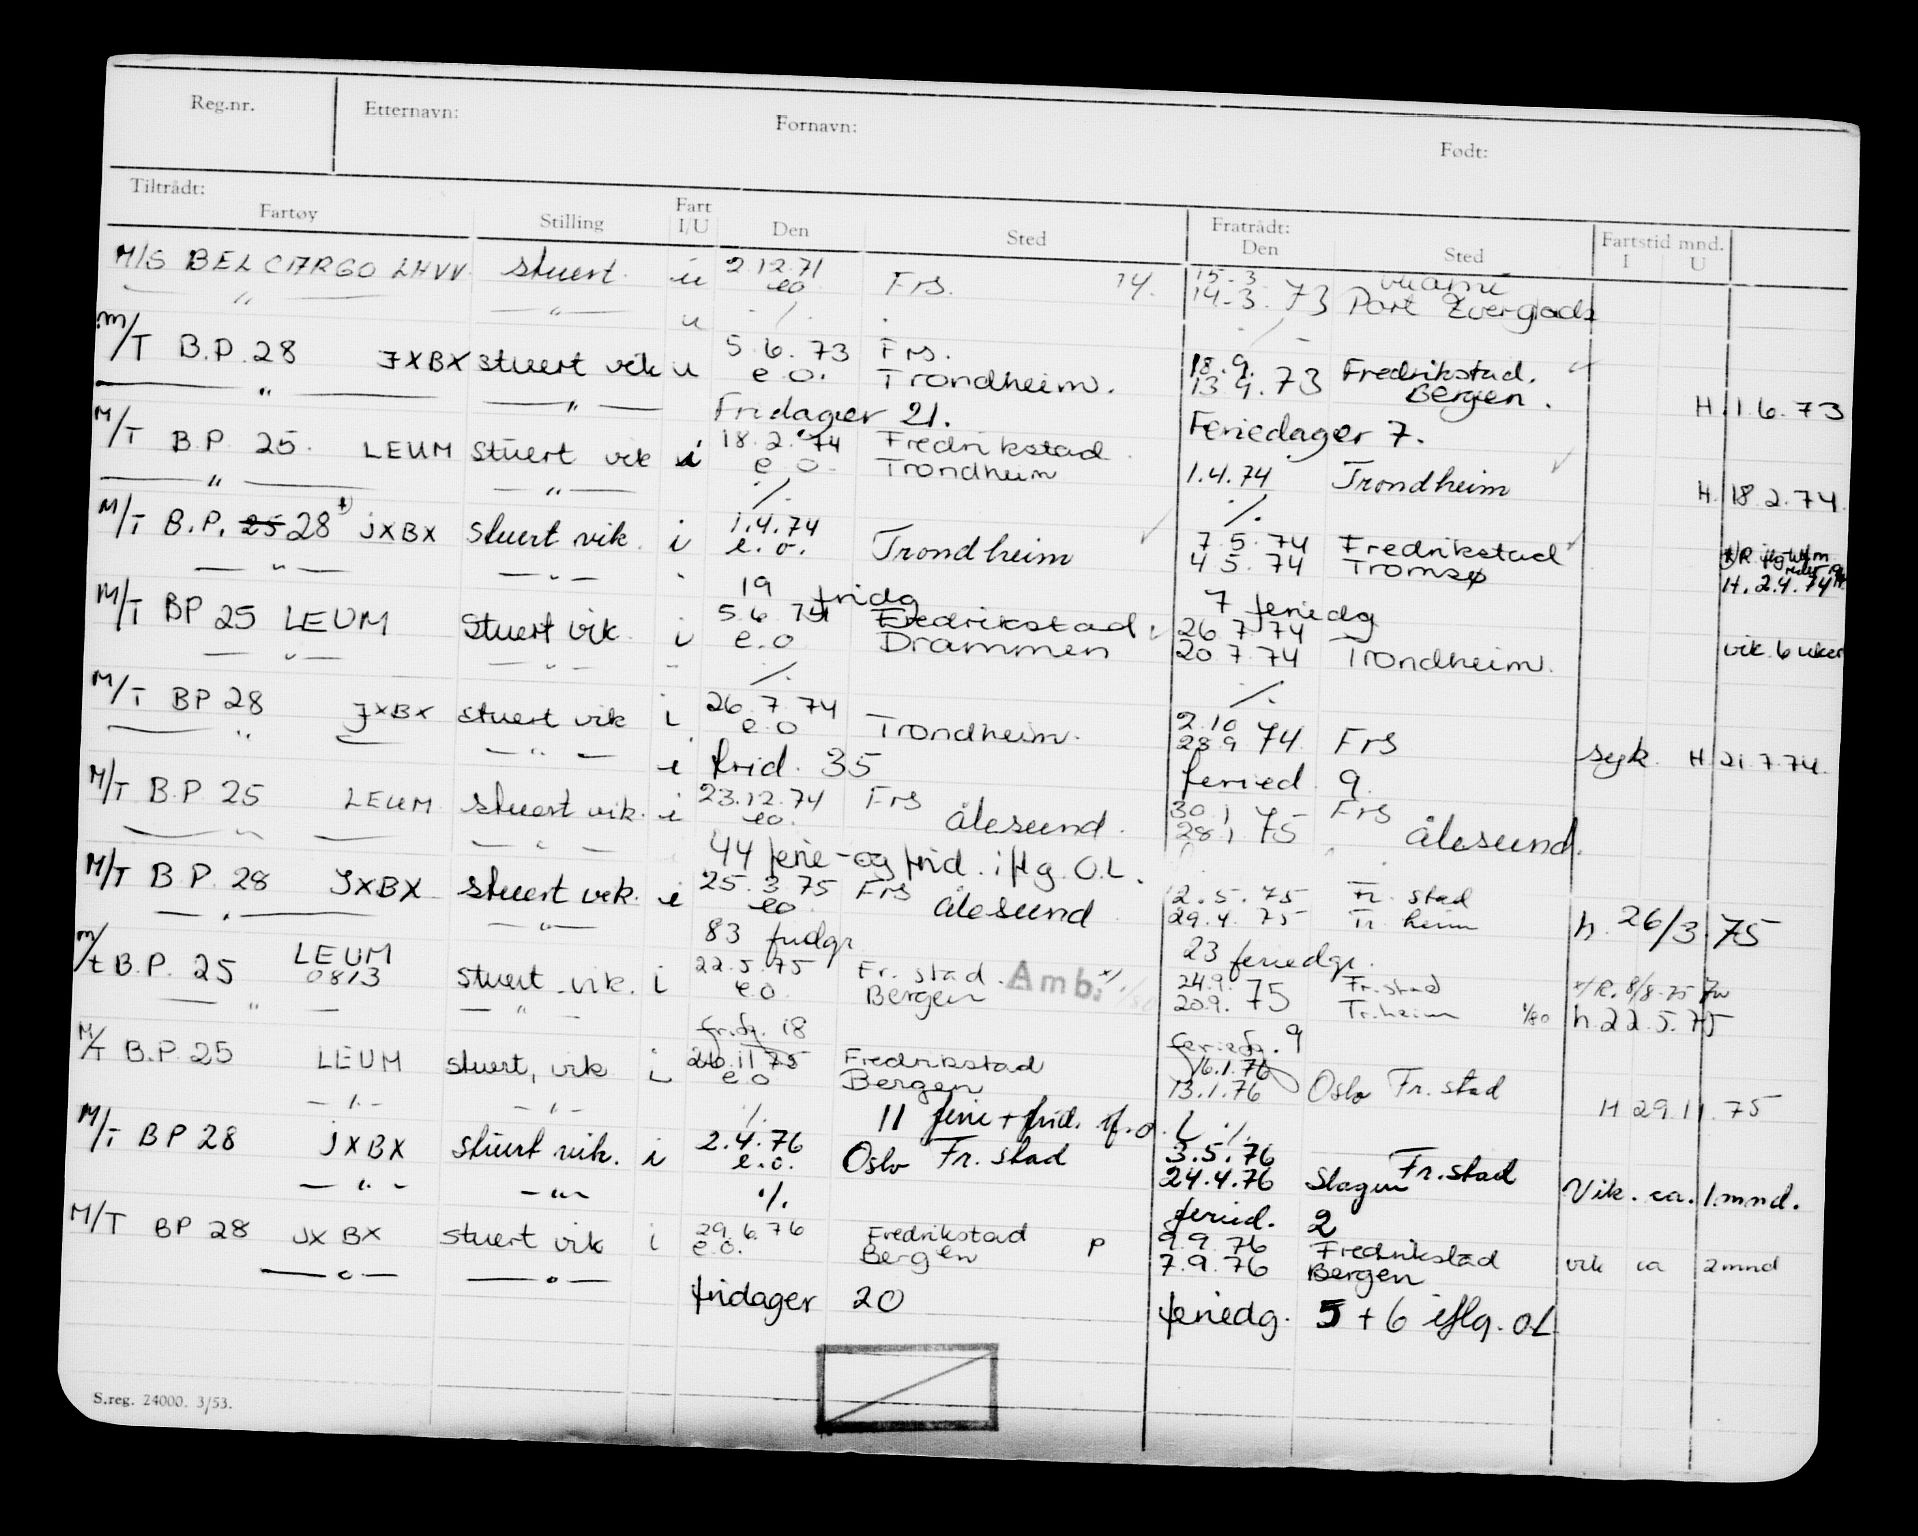 Reg.nr. Etternavn: Fornavn: Født:
Tiltrådt: Fratrådt: Fartstid mnd.
Fartøy Stilling Fart I/U Den Sted Den Sted I U
M/S BELCARGO LHVV stuert. u 2.12.71 Frs. 14. 15-3
— " — — " — u eo 14-3. 73 Port Everglads
m/T B.P. 28 JXBX stuert vik u 5.6.73 Frs. 18.9. Fredrikstad.
e.o. Trondheim. 13.9.73 Bergen. H. 1.6.73
— " — — " — Fridager 21. Feriedager 7.
M/T B.P. 25. LEUM stuert vik i 18.2.74 Fredrikstad
e.o. Trondheim 1.4.74 Trondheim H. 18.2.74.
— " — — " — ./. ./.
M/T B.P. 25 28 x) JXBX stuert vik. i 1.4.74 7.5.74 Fredrikstad
e.o. Trondheim 4.5.74 Tromsø H. 2.4.74
— " — — " — 19 fridg 7 feriedg
M/T BP 25 LEUM stuert vik. i 5.6.74 Fredrikstad. 26.7.74
e.o Drammen 20.7.74 Trondheim. vik. 6 uker
— " — — " — ./. ./.
M/T BP 28 JXBX stuert vik i 26.7.74 2.10
e.o Trondheim. 28.9 74 Frs syk. H. 21.7.74.
— " — — " — i frid. 35 feried. 9.
M/T B.P. 25 LEUM stuert vik. i 23.12.74 Frs 30.1 75 Frs
eo. ålesund. 28.1 ålesund.
— " — — " — 44 ferie-og frid. iflg. O.L.
M/T B.P. 28 JXBX stuert vik. i 25.3.75 Frs 12.5.75 Fr. stad
eo. ålesund 29.4.75 Tr. heim h. 26/3 75
— " — — " — 83 fridgr 23 feriedgr.
m/t B.P. 25 LEUM 0813 stuert vik. i 22.5.75 Fr. stad. Amb. 24.9. 75 Fr.stad x/R. 8/8-75
e.o. Bergen 20.9. Tr.heim h. 22.5.75
— " — — " — fr.dg. 18 feriedg. 9
M/T B.P. 25 LEUM stuert, vik i 26.11.75 Fredrikstad 16.1.76
e.o Bergen 13.1.76 Oslo Fr. stad H 29.11.75
— " — — " — ./. 11 ferie + frid. if. o. L ./.
M/T BP 28 JXBX stuert vik. i 2.4.76 3.5.76 Fr. stad
e.o. Oslo Fr. stad 24.4.76 Slagen Vik. ca. 1.mnd.
— " — — " — ./. feried. 2
M/T BP 28 JXBX stuert vik i 29.6.76 Fredrikstad P 9.9.76 Fredrikstad
e.o. Bergen 7.9.76 Bergen vik ca 2 mnd
— " — — " — fridager 20 feriedg. 5 + 6 iflg. OL
S.reg. 24000. 3/53.